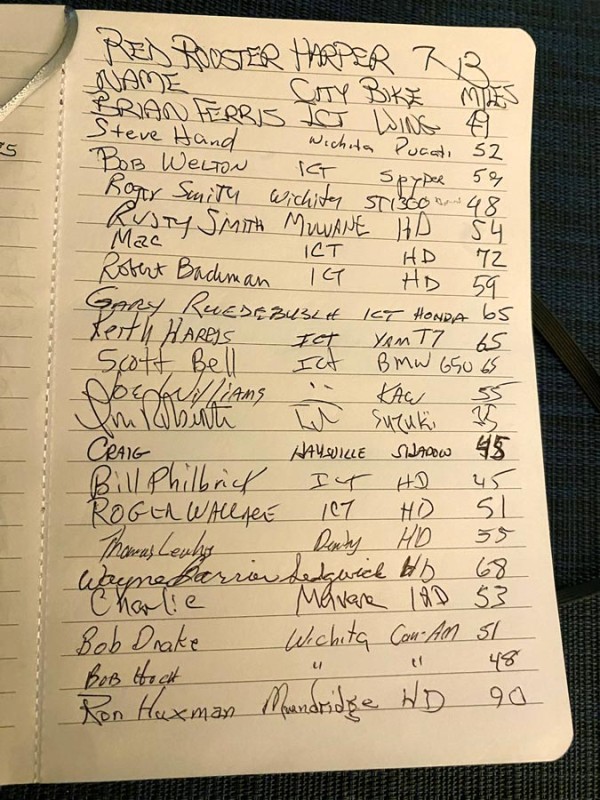 RED ROOSTER HARPER 7 13
NAME CITY BIKE MILES
BRIAN FERRIS ICT WING 49
Steve Hand Wichita Ducati 52
BOB WELTON ICT Spyder 59
Roger Smith Wichita ST1300 48
RUSTY SMITH MULVANE HD 54
Mac ICT HD 72
Robert Bachman ICT HD 59
GARY RUEDEBUSCH ICT HONDA 65
Keith HARRIS ICT YAM T7 65
Scott Bell ICT BMW 650 65
Joe Williams " KAW 55
Suzuki 35
CRAIG HAYSVILLE SHADOW 45
Bill Philbrick ICT HD 45
ROGER WALLACE ICT HD 51
Thomas HD 55
Wayne Barrier Sedgwick HD 68
Charlie 53
Bob Drake Wichita Can-AM 51
BOB Hoch " " 48
Ron Huxman Moundridge HD 90